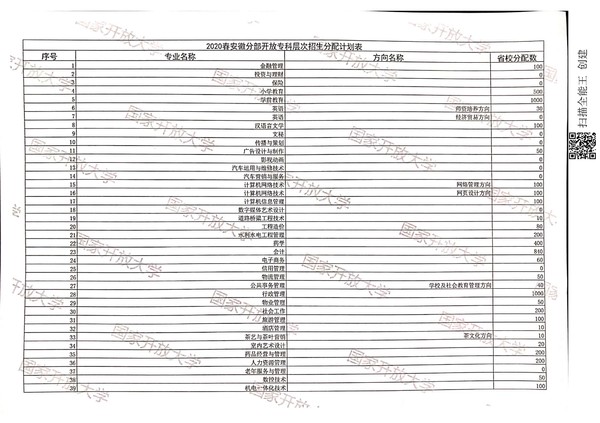 2020春安徽分部开放专科层次招生分配计划表
序号 专业名称 方向名称 省校分配数
1 金融管理 100
2 投资与理财 0
3 保险 0
4 小学教育 800
5 学前教育 1000
6 英语 师资培养方向 30
7 英语 经济贸易方向 0
8 汉语言文学 100
9 文秘 0
10 传播与策划 0
11 广告设计与制作 50
12 影视动画 0
13 汽车运用与维修技术 0
14 汽车营销与服务 0
15 计算机网络技术 网络管理方向 100
16 计算机网络技术 网页设计方向 100
17 计算机信息管理 100
18 数字媒体艺术设计 0
19 道路桥梁工程技术 10
20 工程造价 80
21 水利水电工程管理 200
22 药学 400
23 会计 840
24 电子商务 60
25 信用管理 0
26 物流管理 50
27 公共事务管理 学校及社会教育管理方向 40
28 行政管理 1000
29 物业管理 50
30 社会工作 200
31 旅游管理 100
32 酒店管理 10
33 茶艺与茶叶营销 茶文化方向 10
34 室内艺术设计 20
35 药品经营与管理 200
36 人力资源管理 200
37 老年服务与管理 0
38 数控技术 50
39 机电一体化技术 100
国家开放大学
扫描全能王 创建